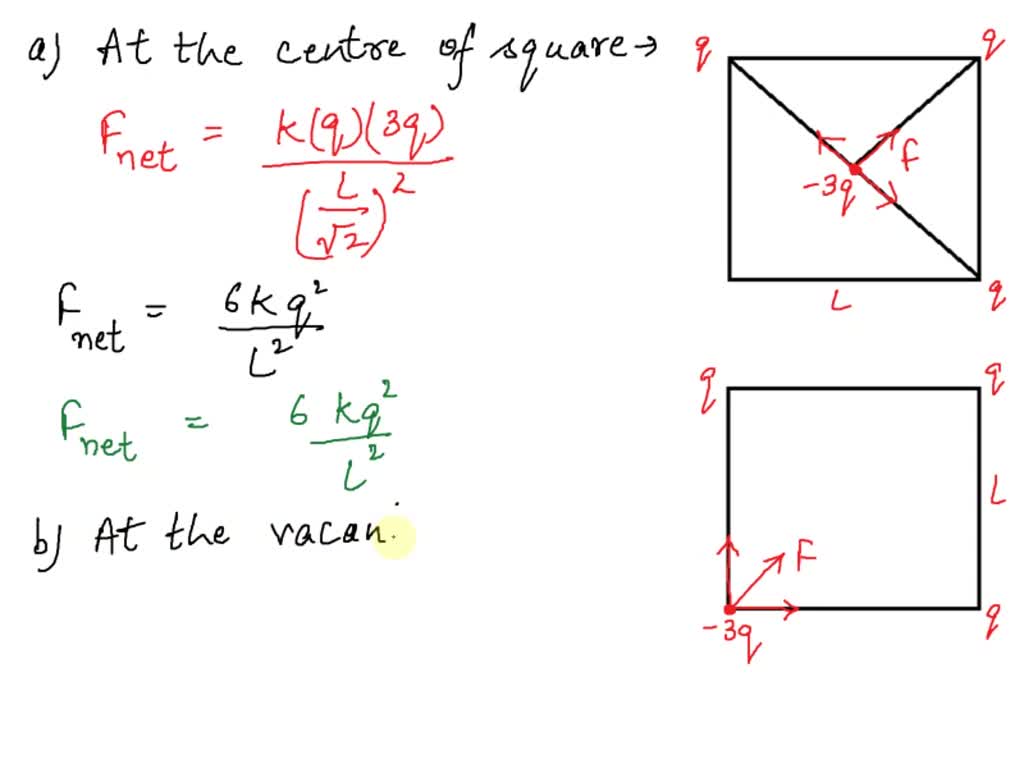 a) At the centre of square →
F_net = k(q)(3q) / (L/√2)²
F_net = 6kq² / L²
F_net = 6 kq² / L²
b) At the vacan
q q
F
-3q
L q
q q
L
F
-3q q